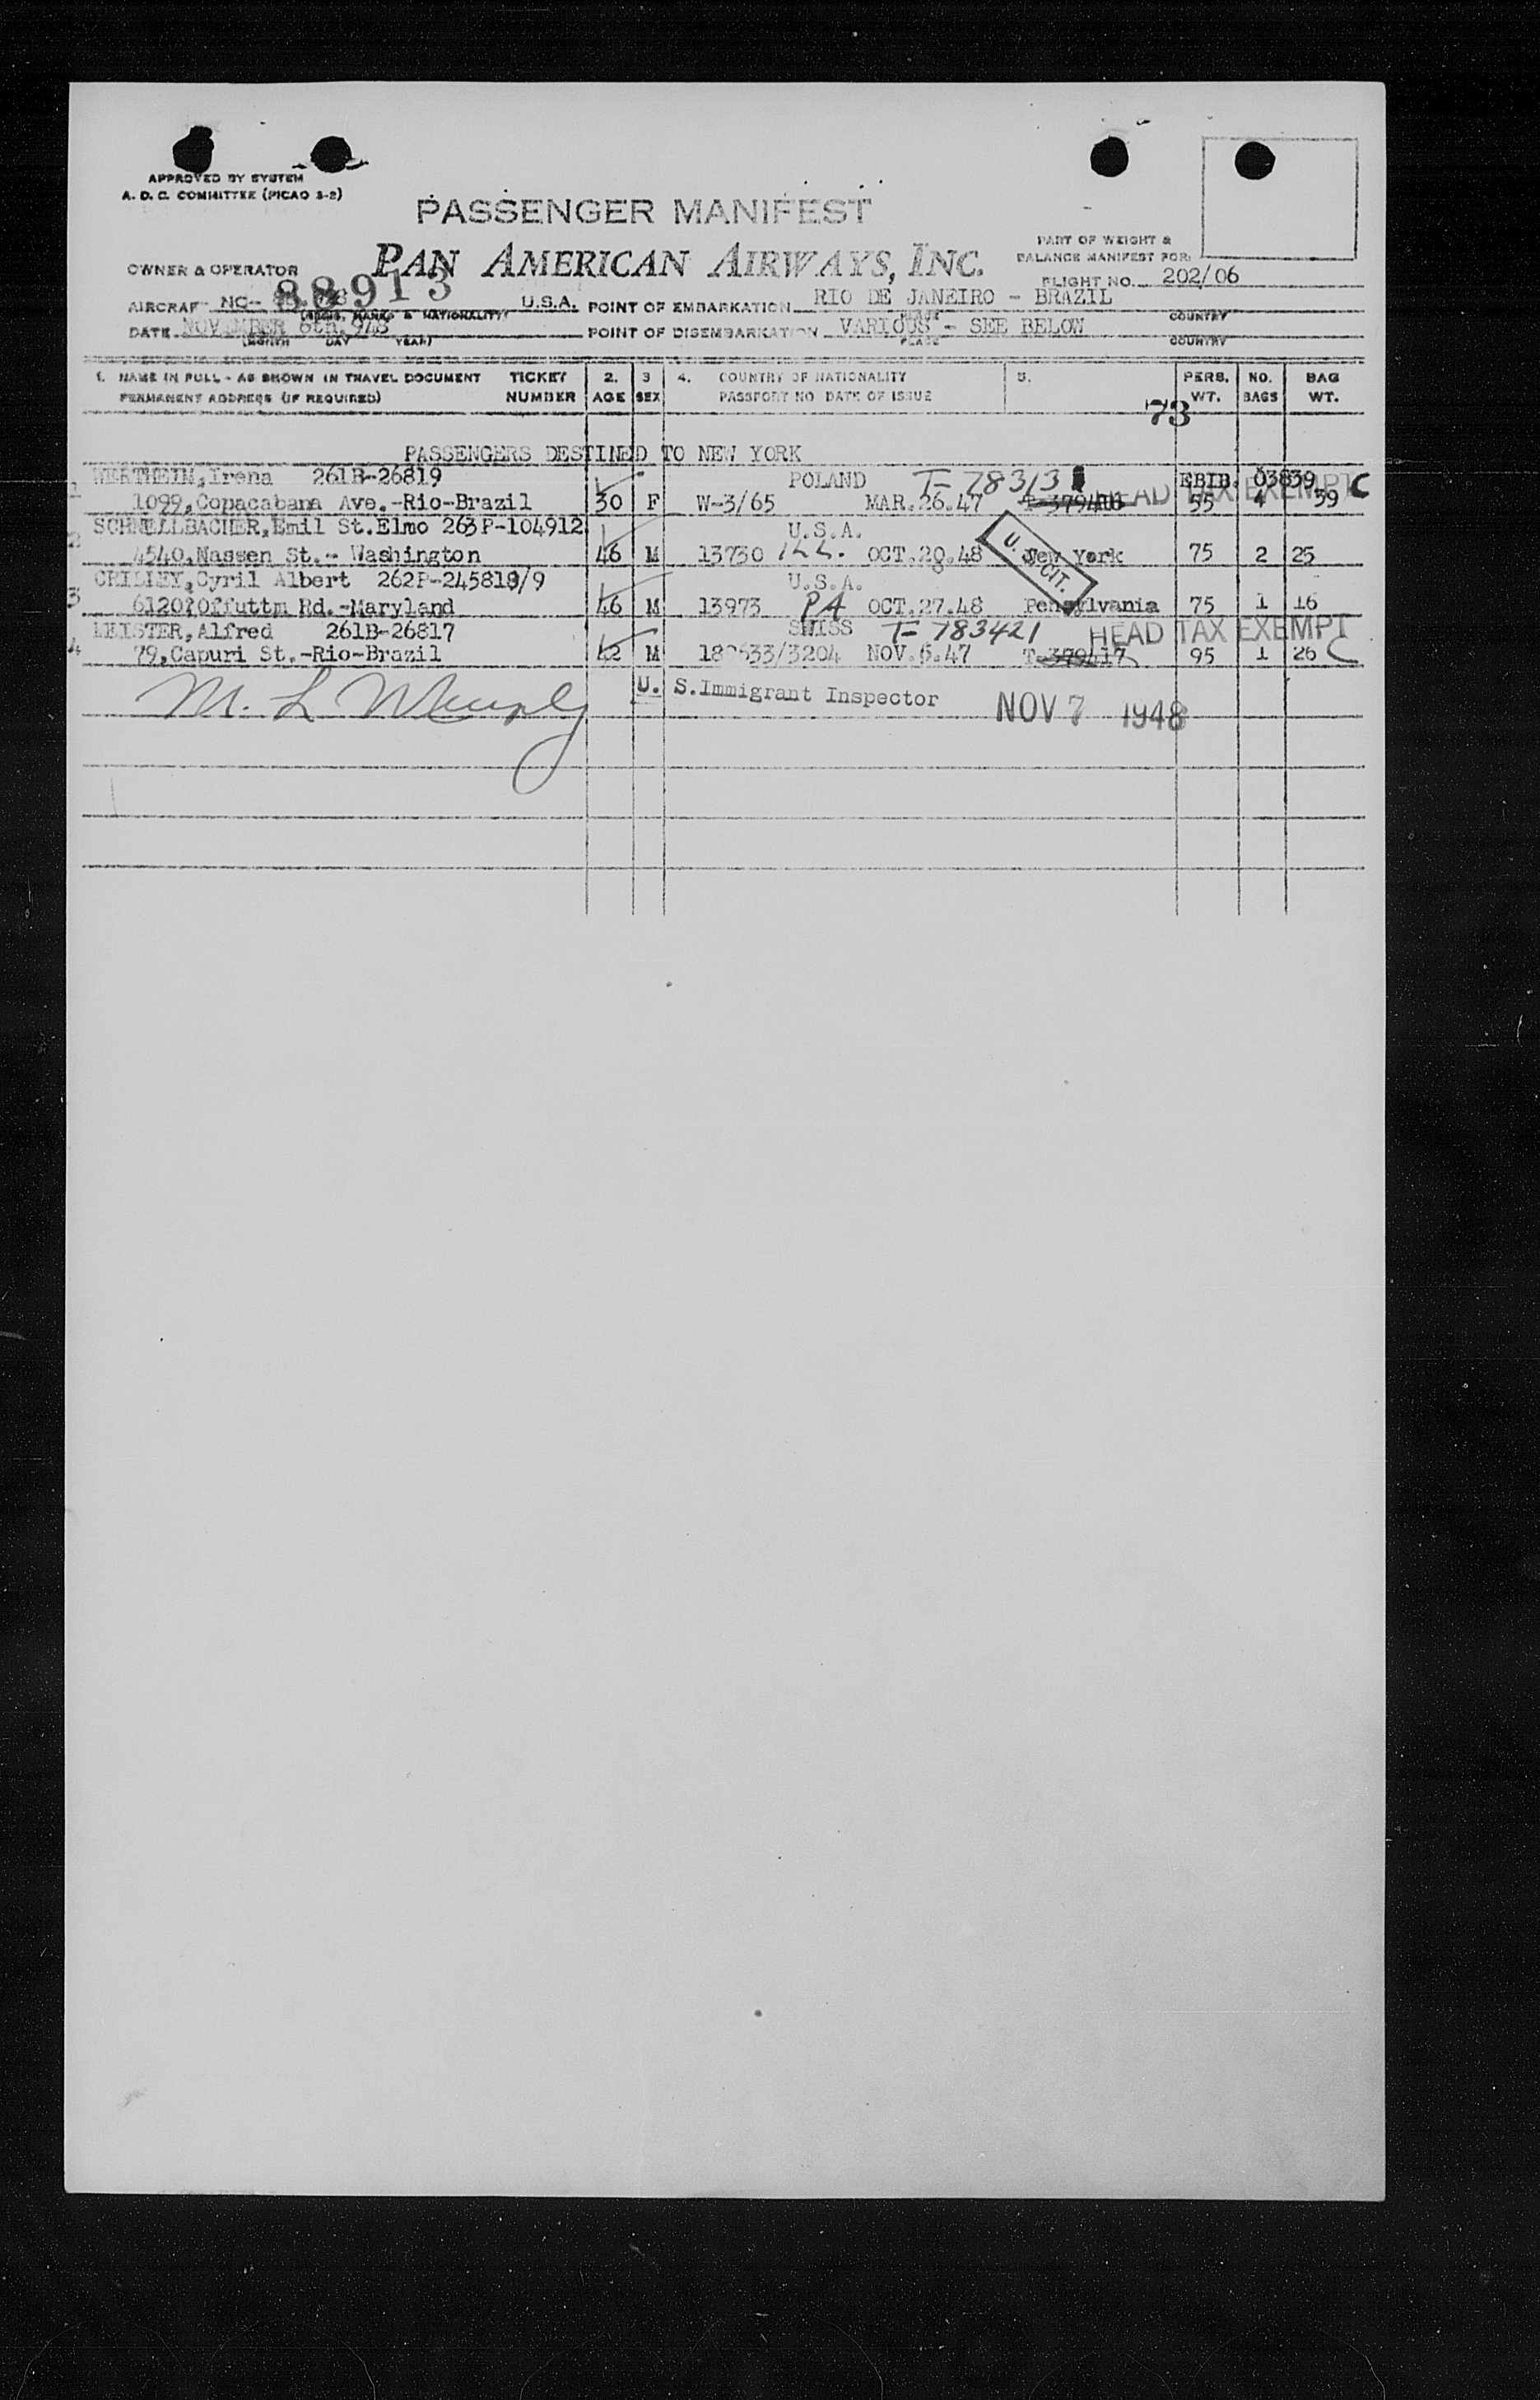 APPROVED BY SYSTEM
A. D. C. COMMITTEE (PICAO 3-2)
PASSENGER MANIFEST
PAN AMERICAN AIRWAYS, INC.
PART OF WEIGHT &
BALANCE MANIFEST FOR:
OWNER & OPERATOR
FLIGHT NO. 202/06
88913
AIRCRAF NC- U.S.A. POINT OF EMBARKATION RIO DE JANEIRO - BRAZIL
(REGIS. MARKS & NATIONALITY) PLACE COUNTRY
DATE NOVEMBER 6th. 948 POINT OF DISEMBARKATION VARIOUS - SEE BELOW
(MONTH DAY YEAR) PLACE COUNTRY
1. NAME IN FULL - AS SHOWN IN TRAVEL DOCUMENT TICKET 2. 3 4. COUNTRY OF NATIONALITY 5. PERS. NO. BAG
PERMANENT ADDRESS (IF REQUIRED) NUMBER AGE SEX PASSPORT NO DATE OF ISSUE WT. BAGS WT.
73
PASSENGERS DESTINED TO NEW YORK
1 WERTHEIM,Irena 261B-26819 POLAND T-78313 EBIB. 03839
1099,Copacabana Ave.-Rio-Brazil 30 F W-3/65 MAR.26.47 HEAD TAX EXEMPT C 55 4 39
2 SCHNELLBACHER,Emil St.Elmo 263P-104912 U.S.A.
4540,Nassen St.- Washington 46 M 13730 ILL. OCT.20.48 U. S. CIT. New York 75 2 25
3 CRILLEY,Cyril Albert 262P-245818/9 U.S.A.
6120?Offuttm Rd.-Maryland 46 M 13973 PA OCT.27.48 Pensylvania 75 1 16
4 MEISTER,Alfred 261B-26817 SWISS T-783421 HEAD TAX EXEMPT
79,Capuri St.-Rio-Brazil 42 M NOV.5.47 T-379417 95 1 26 C
U. S.Immigrant Inspector NOV 7 1948